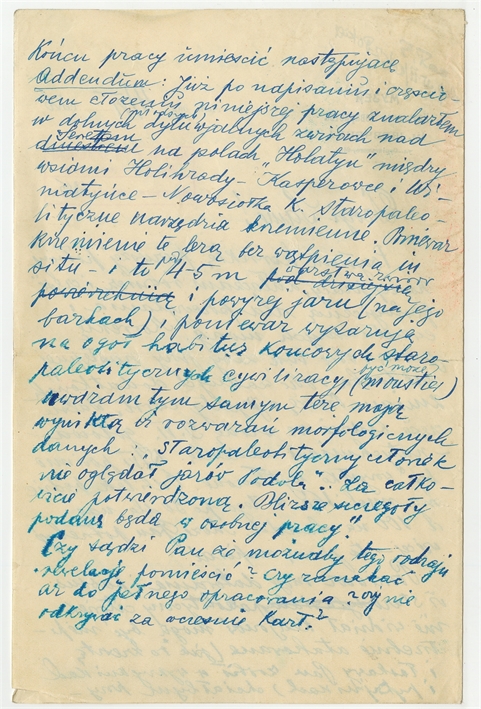 Końcu pracy umieścić następujące
Addendum: Już po napisaniu i częścio-
wem złożeniu niniejszej pracy znalazłem
w dolnych dyluwjalnych żwirach nad
Seretem na polach „Hołatyn" między
wsiami Holihrady - Kasperowce i Wi-
niatyńce - Nowosiółka K. staropaleo-
lityczne narzędzia krzemienne. Ponieważ
krzemienie te leżą bez wątpienia in
situ - i to pod 4-5 m warstwą żwirów
i powyżej jaru (na jego
barkach) i ponieważ wykazują
na ogół habitus końcowych staro-
paleolitycznych cywilizacyj (być może moustier)
uważam tym samym tezę moją
wynikłą z rozważań morfologicznych
danych: „staropaleolityczny człowiek
nie oglądał jarów Podola". Za całko-
wicie potwierdzoną. Bliższe szczegóły
podane będą w osobnej pracy."
Czy sądzi Pan że możnaby tego rodzaju
rewelację pomieścić? Czy zaczekać
aż do pełnego opracowania? czy nie
odkrywać za wcześnie kart?